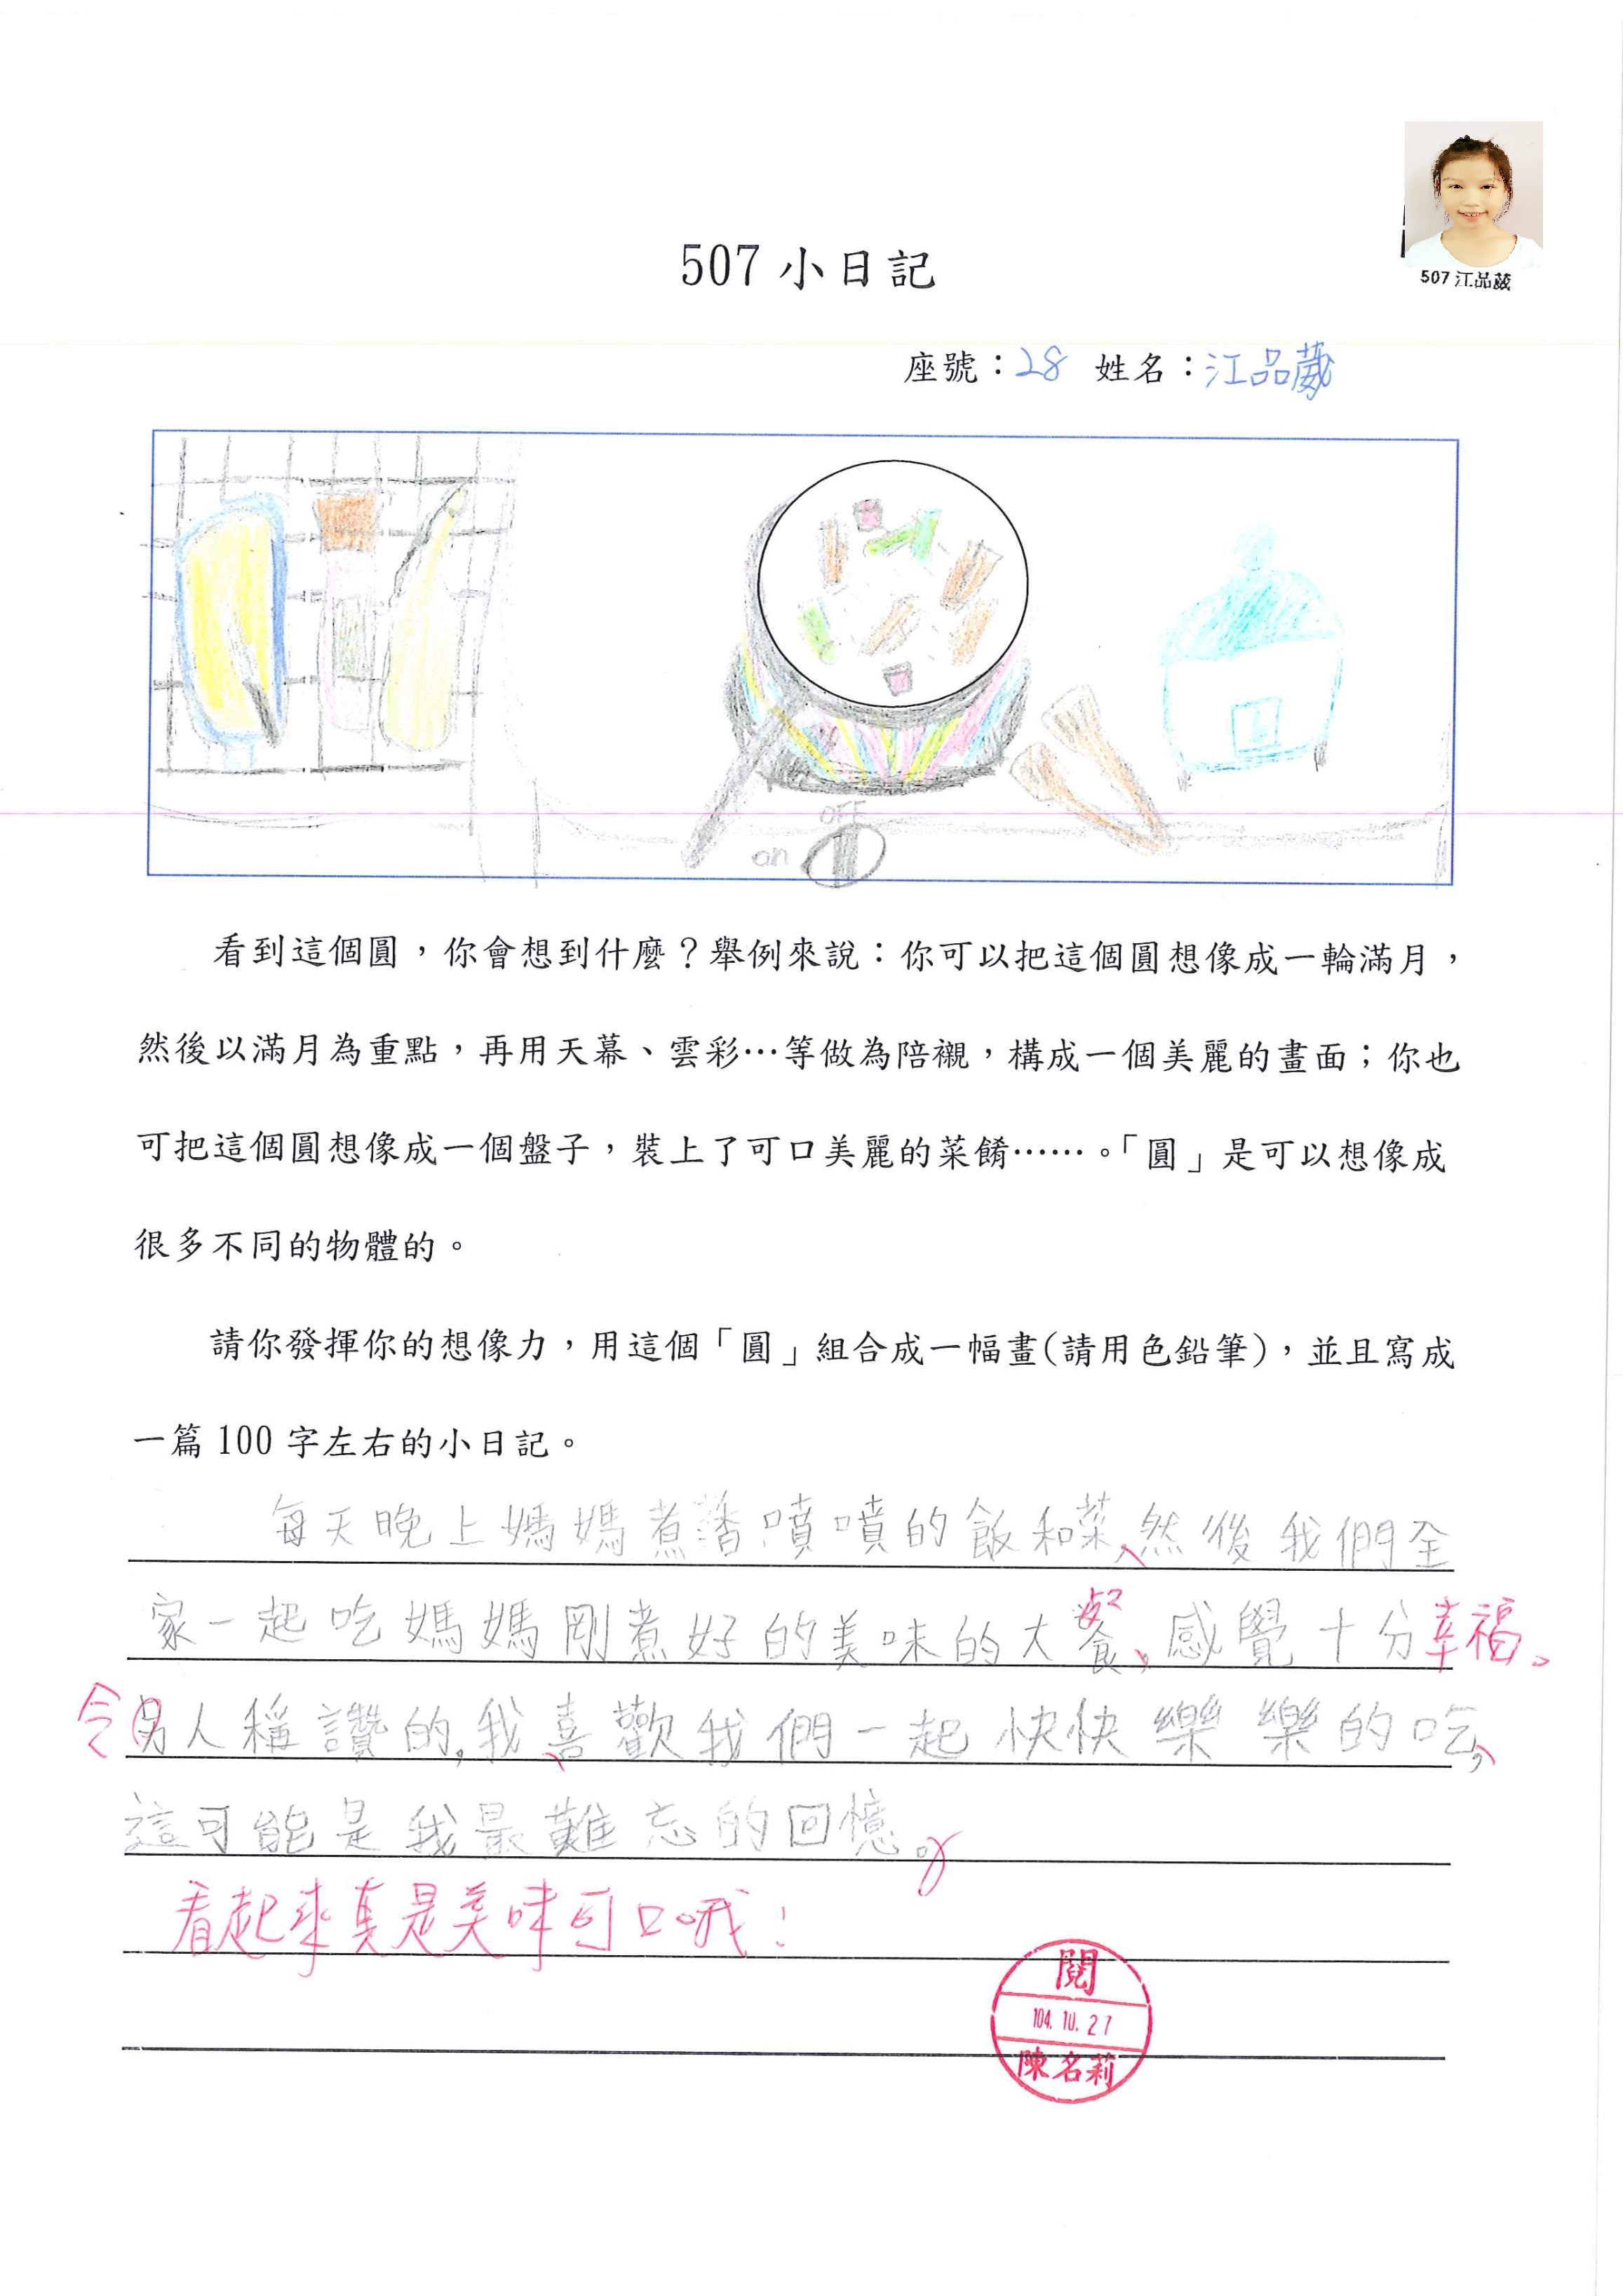 507 江品葳
507 小日記
座號：28 姓名：江品葳
OFF
on
看到這個圓，你會想到什麼？舉例來說：你可以把這個圓想像成一輪滿月，
然後以滿月為重點，再用天幕、雲彩…等做為陪襯，構成一個美麗的畫面；你也
可把這個圓想像成一個盤子，裝上了可口美麗的菜餚……。「圓」是可以想像成
很多不同的物體的。
請你發揮你的想像力，用這個「圓」組合成一幅畫(請用色鉛筆)，並且寫成
一篇 100 字左右的小日記。
每天晚上媽媽煮香噴噴的飯和菜，然後我們全
家一起吃媽媽剛煮好的美味的大餐，感覺十分幸福。
令人稱讚的，我喜歡我們一起快快樂樂的吃，
這可能是我最難忘的回憶。
看起來真是美味可口哦！
閱
104.10.27
陳名莉